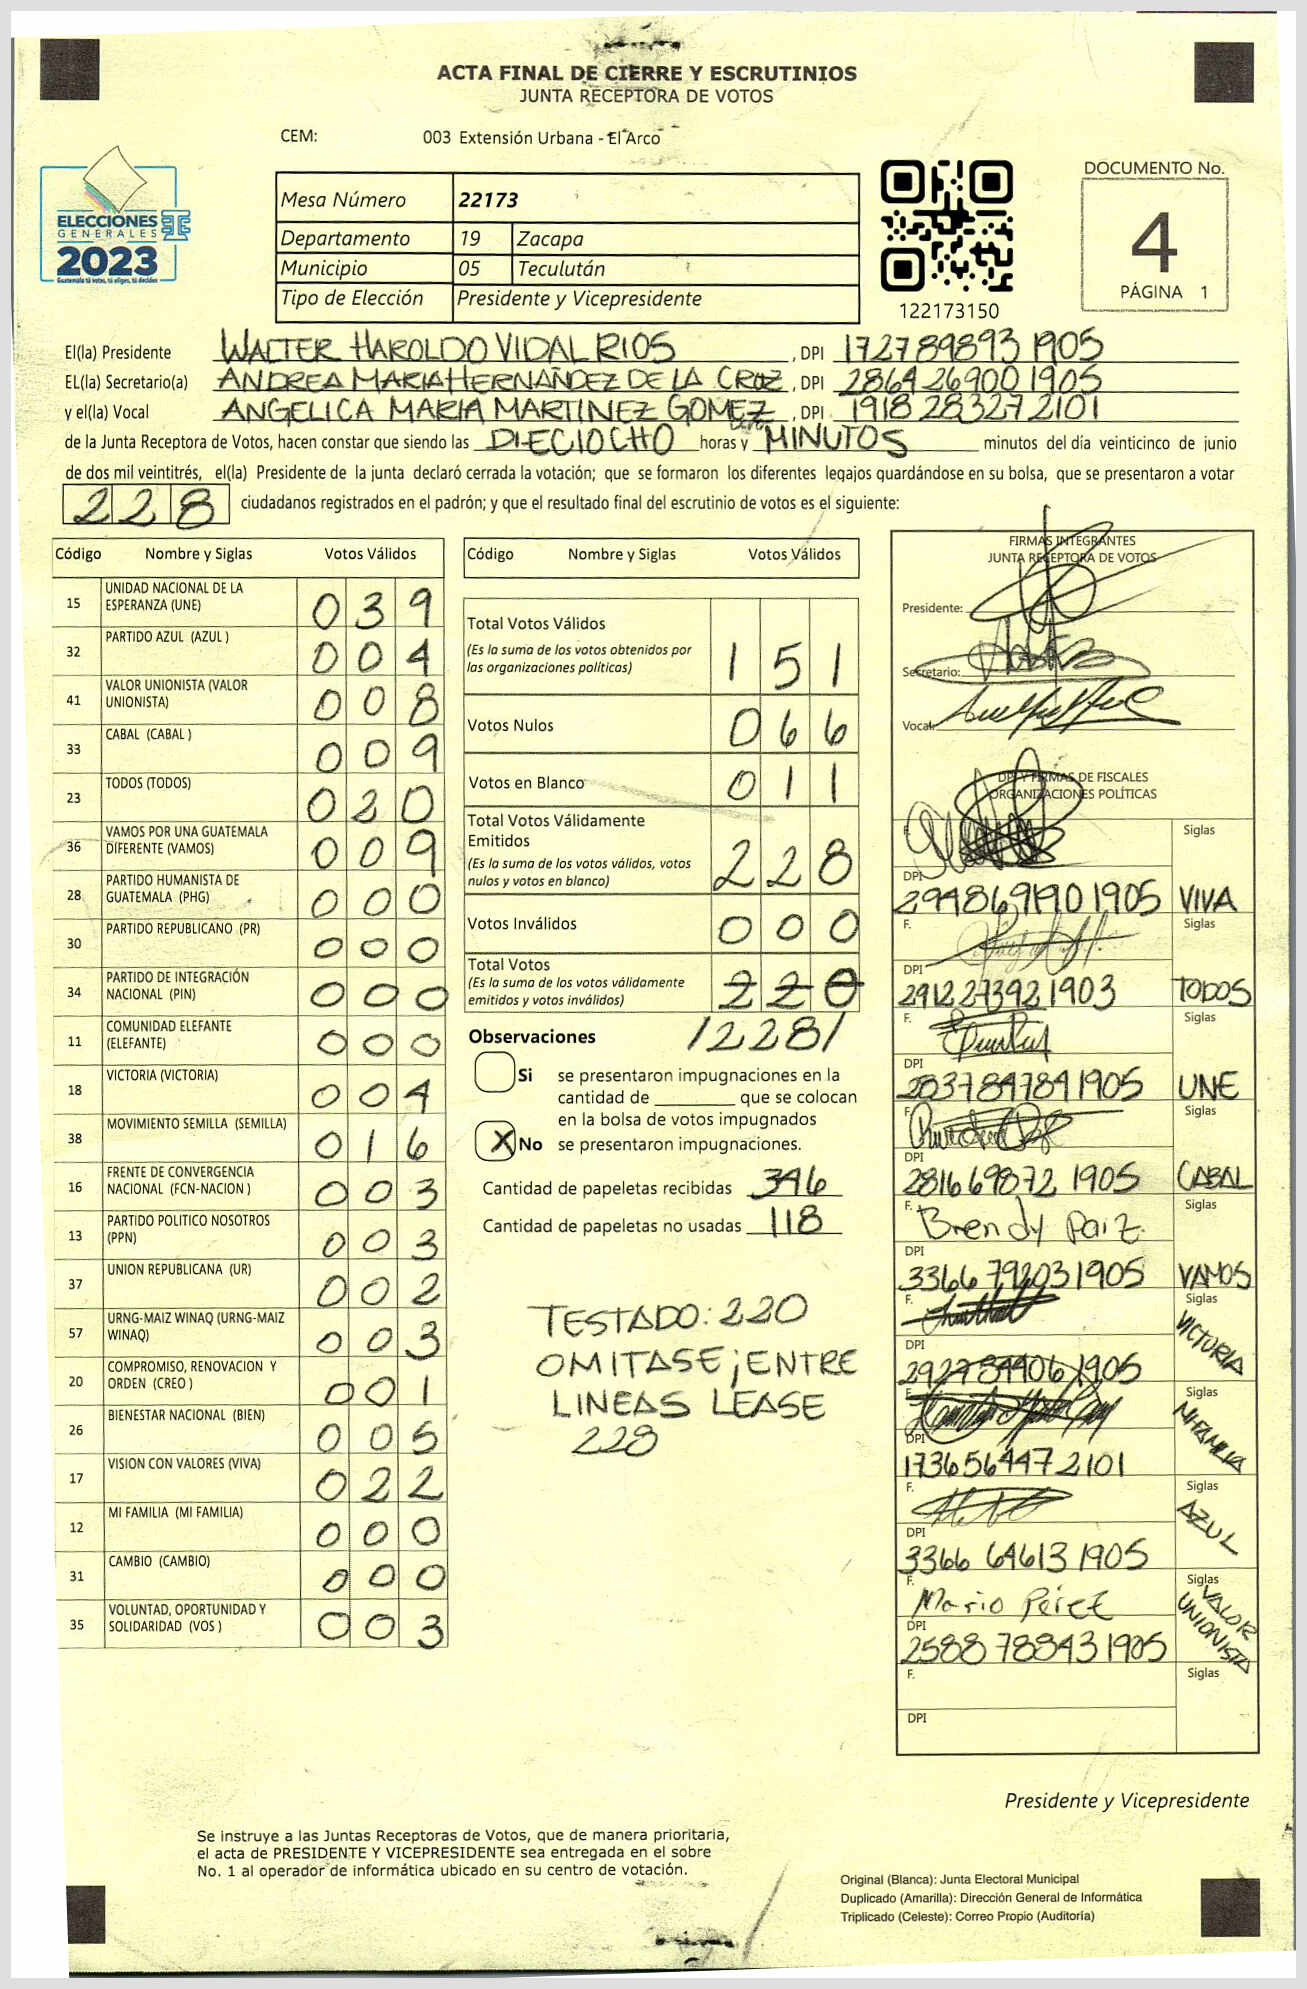 ACTA FINAL DE CIERRE Y ESCRUTINIOS
JUNTA RECEPTORA DE VOTOS
CEM: 003 Extensión Urbana - El Arco
ELECCIONES
GENERALES
2023
Guatemala tú votas, tú eliges, tú decides
Mesa Número 22173
Departamento 19 Zacapa
Municipio 05 Teculután
Tipo de Elección Presidente y Vicepresidente
122173150
DOCUMENTO No.
4
PÁGINA 1
El(la) Presidente WALTER HAROLDO VIDAL RIOS, DPI 172789893 1905
EL(la) Secretario(a) ANDREA MARIA HERNÁNDEZ DE LA CRUZ, DPI 2864 26900 1905
y el(la) Vocal ANGELICA MARIA MARTINEZ GOMEZ, DPI 1918 28327 2101
de la Junta Receptora de Votos, hacen constar que siendo las DIECIOCHO horas y MINUTOS minutos del día veinticinco de junio
de dos mil veintitrés, el(la) Presidente de la junta declaró cerrada la votación; que se formaron los diferentes legajos guardándose en su bolsa, que se presentaron a votar
228 ciudadanos registrados en el padrón; y que el resultado final del escrutinio de votos es el siguiente:
Código Nombre y Siglas Votos Válidos
15 UNIDAD NACIONAL DE LA
ESPERANZA (UNE) 039
32 PARTIDO AZUL (AZUL ) 004
41 VALOR UNIONISTA (VALOR
UNIONISTA) 008
33 CABAL (CABAL ) 009
23 TODOS (TODOS) 020
36 VAMOS POR UNA GUATEMALA
DIFERENTE (VAMOS) 009
28 PARTIDO HUMANISTA DE
GUATEMALA (PHG) 000
30 PARTIDO REPUBLICANO (PR) 000
34 PARTIDO DE INTEGRACIÓN
NACIONAL (PIN) 000
11 COMUNIDAD ELEFANTE
(ELEFANTE) 000
18 VICTORIA (VICTORIA) 004
38 MOVIMIENTO SEMILLA (SEMILLA) 016
16 FRENTE DE CONVERGENCIA
NACIONAL (FCN-NACION ) 003
13 PARTIDO POLITICO NOSOTROS
(PPN) 003
37 UNION REPUBLICANA (UR) 002
57 URNG-MAIZ WINAQ (URNG-MAIZ
WINAQ) 003
20 COMPROMISO, RENOVACION Y
ORDEN (CREO ) 001
26 BIENESTAR NACIONAL (BIEN) 005
17 VISION CON VALORES (VIVA) 022
12 MI FAMILIA (MI FAMILIA) 000
31 CAMBIO (CAMBIO) 000
35 VOLUNTAD, OPORTUNIDAD Y
SOLIDARIDAD (VOS ) 003
Código Nombre y Siglas Votos Válidos
Total Votos Válidos
(Es la suma de los votos obtenidos por
las organizaciones políticas) 151
Votos Nulos 066
Votos en Blanco 011
Total Votos Válidamente
Emitidos
(Es la suma de los votos válidos, votos
nulos y votos en blanco) 228
Votos Inválidos 000
Total Votos
(Es la suma de los votos válidamente
emitidos y votos inválidos) 220
/228/
Observaciones
Si se presentaron impugnaciones en la
cantidad de ________ que se colocan
en la bolsa de votos impugnados
X No se presentaron impugnaciones.
Cantidad de papeletas recibidas 346
Cantidad de papeletas no usadas 118
TESTADO: 220
OMITASE; ENTRE
LINEAS LEASE
228
FIRMAS INTEGRANTES
JUNTA RECEPTORA DE VOTOS
Presidente:
Secretario:
Vocal:
DPI Y FIRMAS DE FISCALES
ORGANIZACIONES POLÍTICAS
F. Siglas
DPI
294869190 1905 VIVA
F. Siglas
DPI
2912 27392 1903 TODOS
F. Siglas
DPI
2837847841905 UNE
F. Siglas
DPI
2816 69872 1905 CABAL
F. Brendy Paiz Siglas
DPI
3366 79203 1905 VAMOS
F. Siglas
DPI VICTORIA
292784406 1905
F. Siglas
DPI MI FAMILIA
1736564472101
F. Siglas
DPI AZUL
3366 64613 1905
F. Siglas
DPI VALOR UNIONISTA
2588 78843 1905
F. Siglas
DPI
Presidente y Vicepresidente
Se instruye a las Juntas Receptoras de Votos, que de manera prioritaria,
el acta de PRESIDENTE Y VICEPRESIDENTE sea entregada en el sobre
No. 1 al operador de informática ubicado en su centro de votación.
Original (Blanca): Junta Electoral Municipal
Duplicado (Amarilla): Dirección General de Informática
Triplicado (Celeste): Correo Propio (Auditoría)